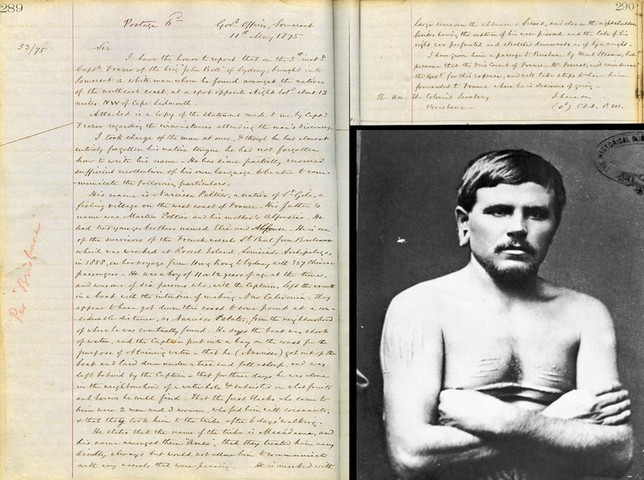 289
Postage 6d. Govt Offices, Somerset
11th May 1875
53/75
Sir
I have the honor to report that on the 5th inst
Captn Frazer of the brig "John Bell" of Sydney, brought into
Somerset a white man whom he found amongst the natives
of the north east coast, at a spot opposite Night Isld about 13
miles NW of Cape Sidmouth.
Attached is a copy of the statement made to me by Captn
Frazer regarding the circumstances attending the man's recovery.
I took charge of the man at once, & though he had almost
entirely forgotten his native tongue he had not forgotten
how to write his name. He has since partially recovered
sufficient recollection of his own language to be able to com-
municate the following particulars.
His name is Narcisse Peltier, a native of St Gilles, a
fishing village on the west coast of France. His father's
name was Martin Peltier and his mother's Alphonsine. He
had two younger brothers named Elie and Alphonse. He is one
of the survivors of the French vessel St Paul from Bordeaux
which was wrecked at Rossel Island, Louisiade Archipelago,
in 1858, on her voyage from Hong Kong to Sydney with 327 Chinese
passengers. He was a boy of 11 or 12 years of age at the time,
and was one of six persons who, with the Captain, left the wreck
in a boat with the intention of making New Caledonia. They
appear to have got down this coast to some point at a con-
siderable distance, as Narcisse states, from the neighbourhood
of where he was eventually found. He says the boat was short
of water, and the Captain put into a bay on the coast for the
purpose of obtaining water - that he (Narcisse) got out of the
boat and laid down under a tree and fell asleep, and was
left behind by the Captain - that for three days he was alone
in the neighbourhood of a waterhole & subsisted on what fruits
and berries he could find. That the first blacks who came to
him were 2 men and 3 women, who fed him with cocoanuts,
& that they took him to the tribe after 2 days walking.
He states that the name of the tribe is Macadama, and
his name amongst them "Anco", that they treated him very
kindly always but would not allow him to communicate
with any vessels that were passing. He is marked with
Per "Brisbane"
290
large scars on the
the lobe of his
right ear perforated and
Govt for this expense, and will take steps to have him
forwarded to France where he is desirous of going.
The Hon. The Colonial Secretary
Brisbane
P.M.
HISTORICAL